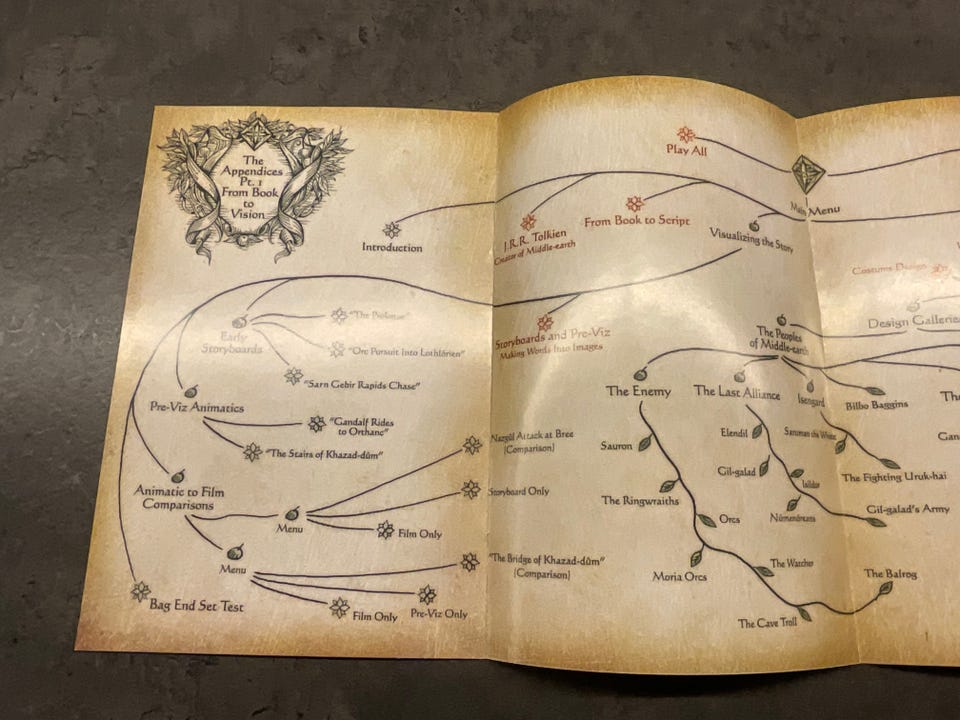 The
Appendices
Pt. 1
From Book
to
Vision
Introduction
Play All
Main Menu
J.R.R. Tolkien
Creator of Middle-earth
From Book to Script
Visualizing the Story
Early
Storyboards
"The Prologue"
"Orc Pursuit Into Lothlórien"
"Sarn Gebir Rapids Chase"
Pre-Viz Animatics
"Gandalf Rides
to Orthanc"
"The Stairs of Khazad-dûm"
Animatic to Film
Comparisons
Menu
Nazgûl Attack at Bree
(Comparison)
Storyboard Only
Film Only
Menu
"The Bridge of Khazad-dûm"
(Comparison)
Pre-Viz Only
Film Only
Bag End Set Test
Storyboards and Pre-Viz
Making Words Into Images
Costume Design
Design Galleries
The Peoples
of Middle-earth
The Enemy
Sauron
The Ringwraiths
Orcs
Moria Orcs
The Watcher
The Cave Troll
The Balrog
The Last Alliance
Elendil
Gil-galad
Isildur
Númenóreans
Gil-galad's Army
Isengard
Saruman the White
The Fighting Uruk-hai
Bilbo Baggins